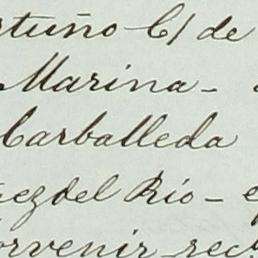 rtuño C/ de
Marina -
Carballeda
uez del Rio - e
orvenir - rec